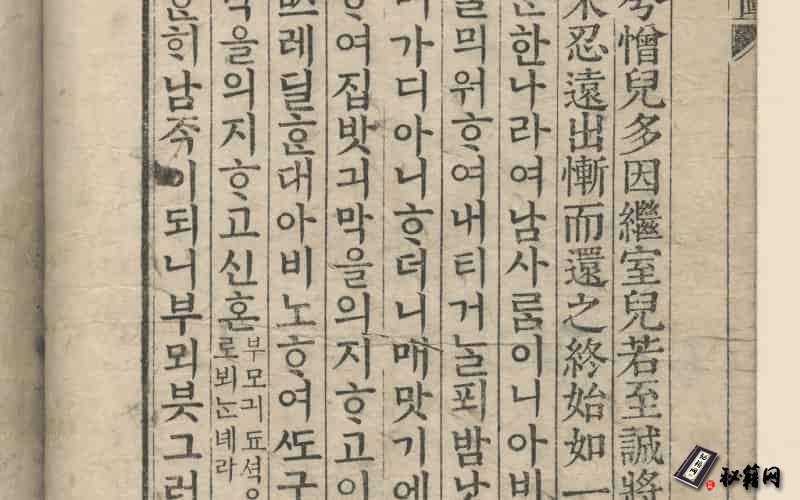 憎兒多因繼室兒若至誠將
忍遠出慚而還之終始如一
한나라여남사ᄅᆞᆷ이니아비
믜워ᄒᆞ여내티거ᄂᆞᆯ푀밤낫
가디아니ᄒᆞ더니매맛기에
ᄒᆞ여집밧긔막을의지ᄒᆞ고이
레딜ᄒᆞᆫ대아비노ᄒᆞ여ᄯᅩ구
을의지ᄒᆞ고신혼
부모긔됴셕의
로뵈ᄂᆞᆫ녜라
남족이되니부뫼븟그려
秘籍网